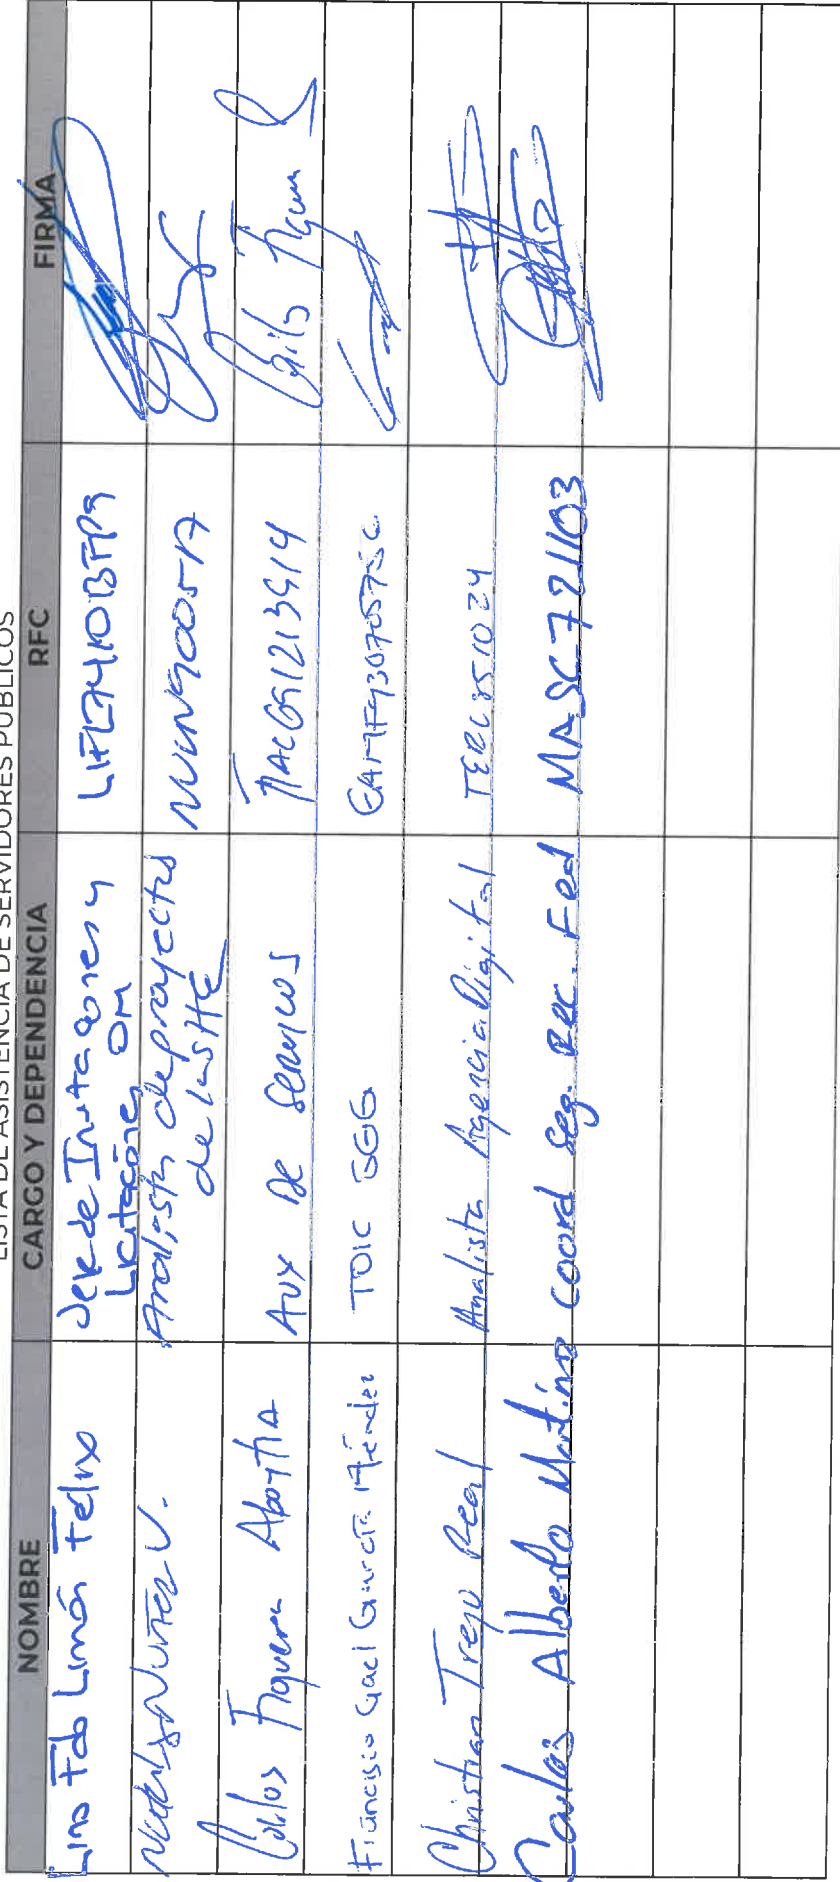 LISTA DE ASISTENCIA DE SERVIDORES PÚBLICOS
NOMBRE CARGO Y DEPENDENCIA RFC FIRMA
Lino Fdo Limón Felix Jefe de Invitaciones y
Licitaciones OM
Nuñez V. Analista de proyectos
de la SHE
Carlos Figueroa Aboytia Aux De Servicios
Francisco Gael García Méndez TOIC SGG GAMF930705
Christian Trejo Real Analista Agencia Digital TERC851024
Carlos Alberto Martínez Coord Seg. Rec. Fed MASC721103